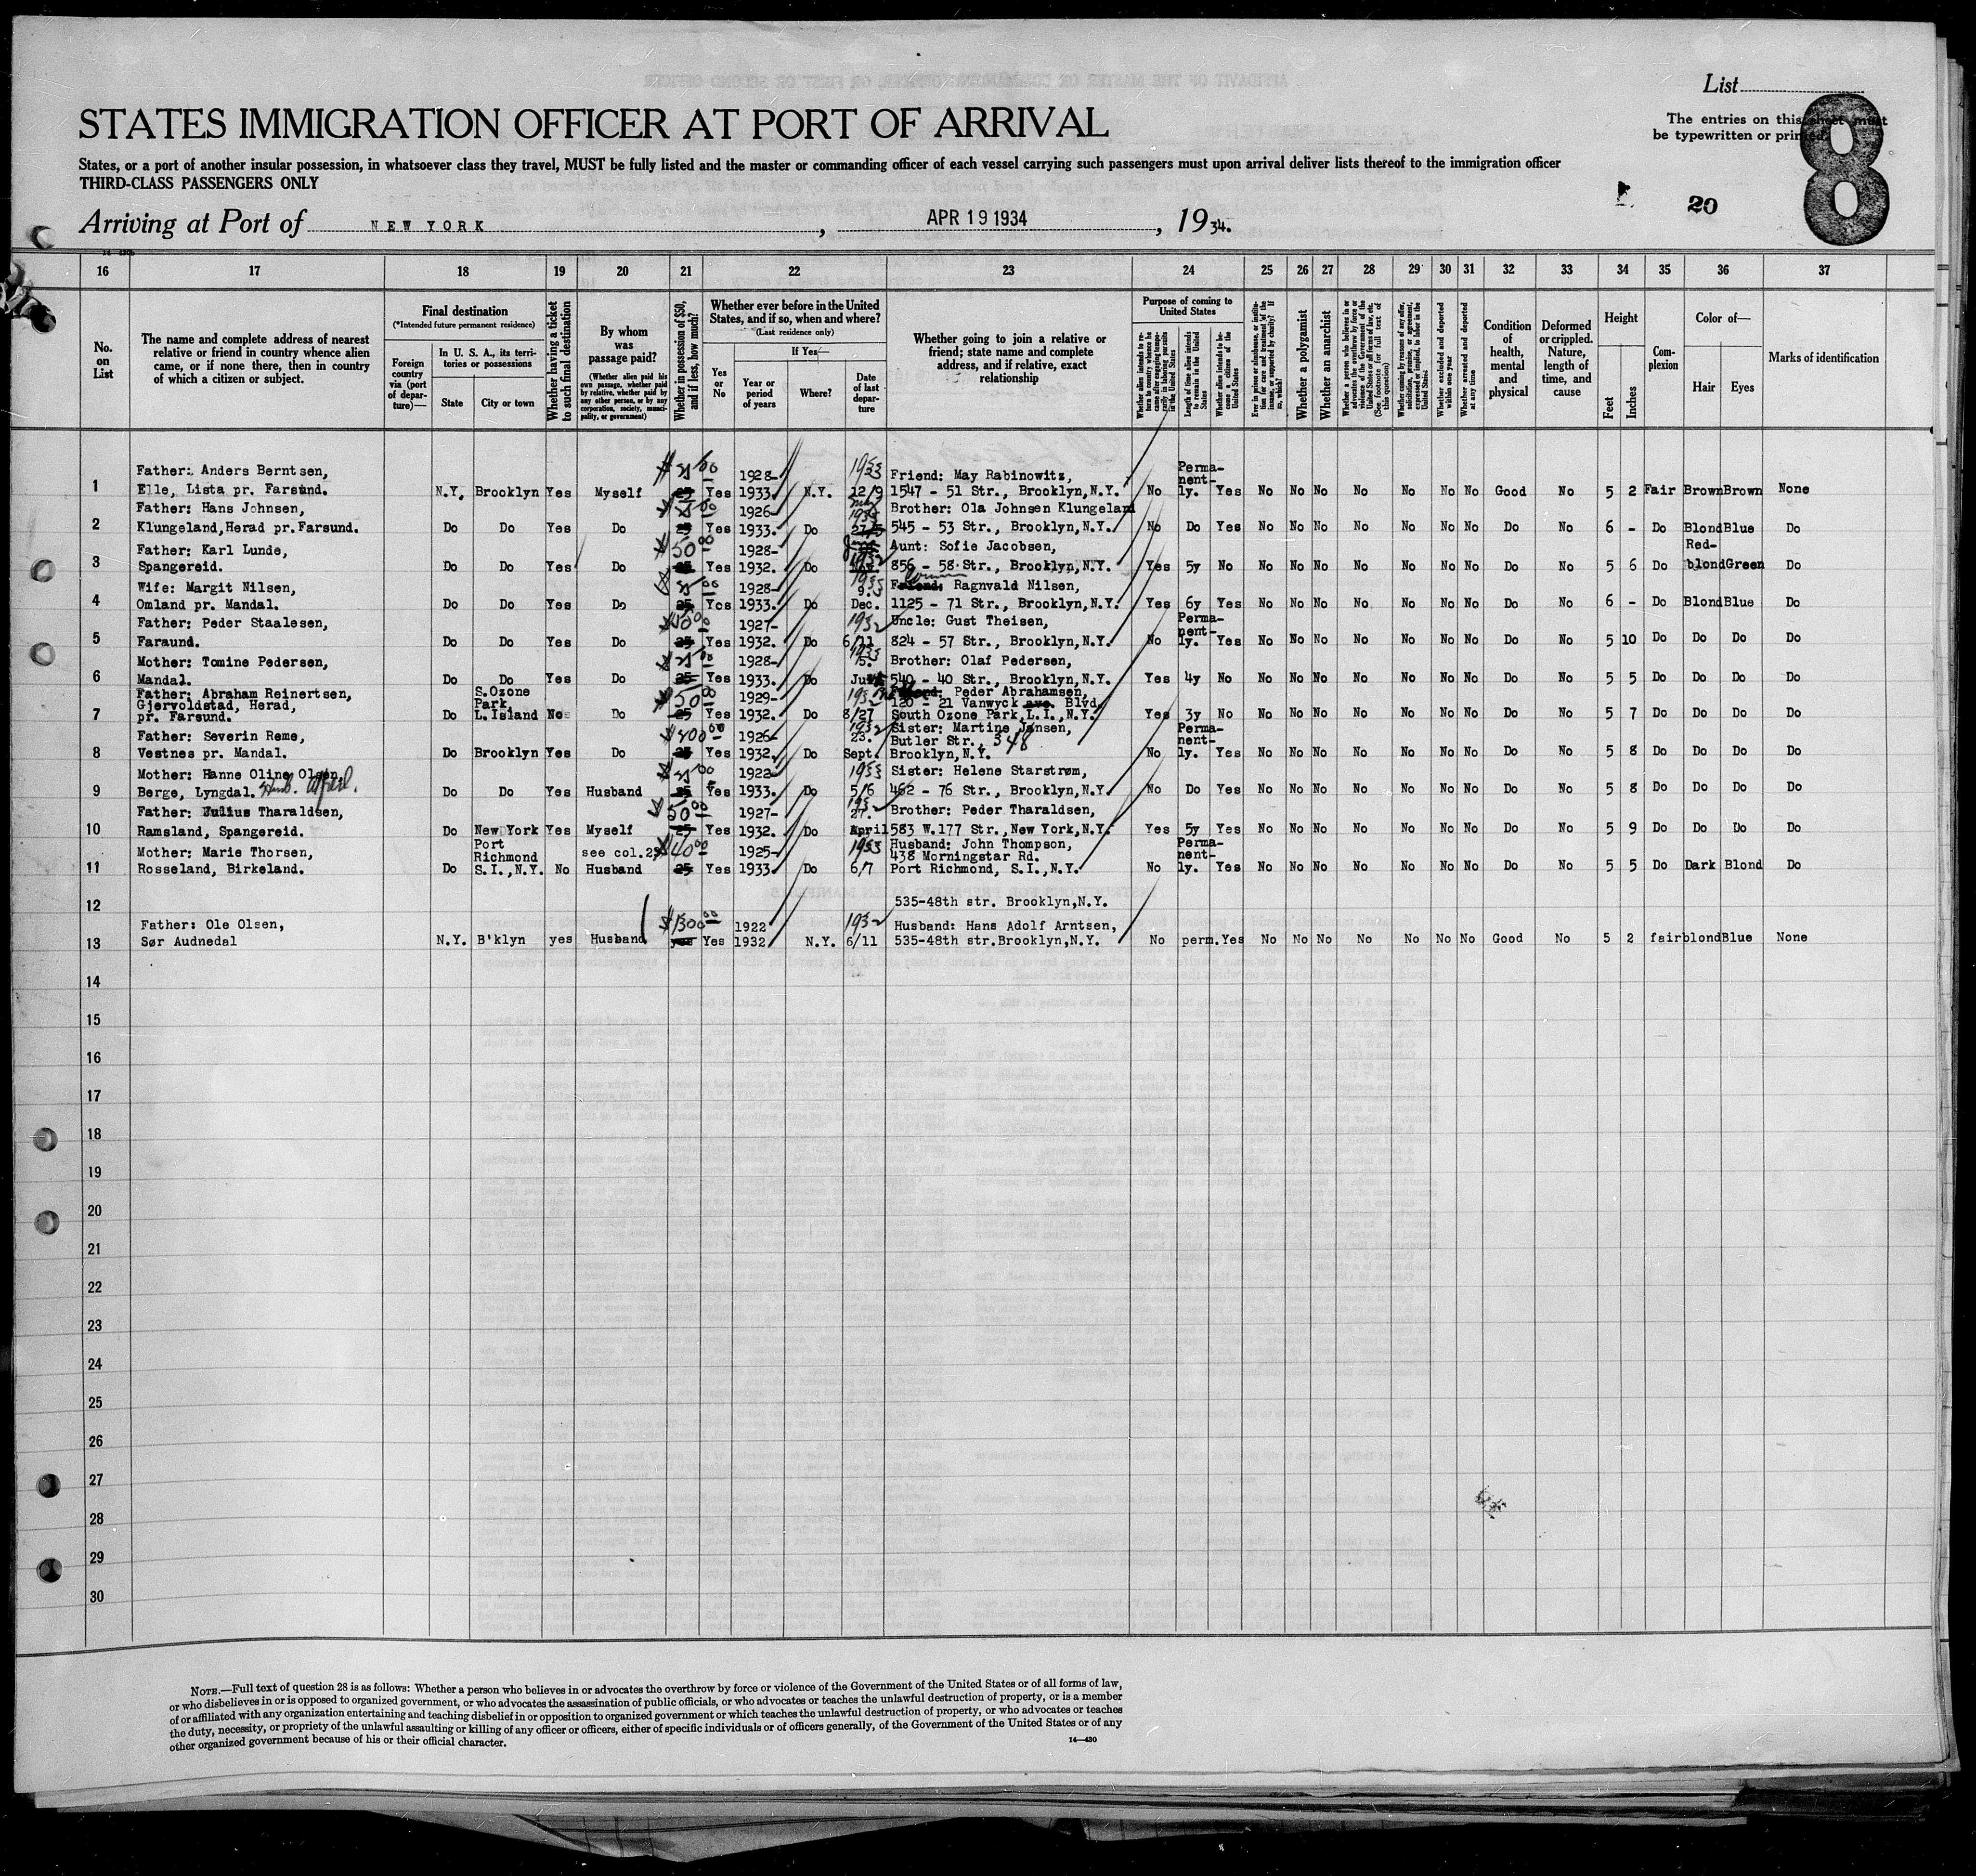 List
The entries on this sheet must
be typewritten or printed.
8
20
STATES IMMIGRATION OFFICER AT PORT OF ARRIVAL
States, or a port of another insular possession, in whatsoever class they travel, MUST be fully listed and the master or commanding officer of each vessel carrying such passengers must upon arrival deliver lists thereof to the immigration officer
THIRD-CLASS PASSENGERS ONLY
Arriving at Port of NEW YORK, APR 19 1934, 1934.
16 17 18 19 20 21 22 23 24 25 26 27 28 29 30 31 32 33 34 35 36 37
No. on List
The name and complete address of nearest relative or friend in country whence alien came, or if none there, then in country of which a citizen or subject.
Final destination
(*Intended future permanent residence)
Foreign country via (port of departure)—
In U. S. A., its territories or possessions
State
City or town
Whether having a ticket to such final destination
By whom was passage paid?
(Whether alien paid his own passage, whether paid by relative, whether paid by any other person, or by any corporation, society, municipality, or government)
Whether in possession of $50, and if less, how much?
Whether ever before in the United States, and if so, when and where?
(Last residence only)
Yes or No
If Yes—
Year or period of years
Where?
Date of last departure
Whether going to join a relative or friend; state name and complete address, and if relative, exact relationship
Purpose of coming to United States
Whether alien intends to return to country whence he came after engaging temporarily in laboring pursuits in the United States
Length of time alien intends to remain in the United States
Whether alien intends to become a citizen of the United States
Ever in prison or almshouse, or institution for care and treatment of the insane, or supported by charity? If so, which?
Whether a polygamist
Whether an anarchist
Whether a person who believes in or advocates the overthrow by force or violence of the Government of the United States or all forms of law, etc. (See footnote for full text of this question)
Whether coming by reason of any offer, solicitation, promise, or agreement, expressed or implied, to labor in the United States
Whether excluded and deported within one year
Whether arrested and deported at any time
Condition of health, mental and physical
Deformed or crippled. Nature, length of time, and cause
Height
Feet
Inches
Complexion
Color of—
Hair
Eyes
Marks of identification
Father: Anders Berntsen, $25 00 1928- 1933 Friend: May Rabinowitz, Perma-nent-
1 Elle, Lista pr. Farsund. N.Y. Brooklyn Yes Myself 25 Yes 1933. N.Y. 22/9 1547 - 51 Str., Brooklyn,N.Y. No ly. Yes No No No No No No No Good No 5 2 Fair Brown Brown None
Father: Hans Johnsen, $25 00 1926- 1933 Brother: Ola Johnsen Klungeland
2 Klungeland,Herad pr.Farsund. Do Do Yes Do 25 Yes 1933. Do 545 - 53 Str., Brooklyn,N.Y. No Do Yes No No No No No No No Do No 6 - Do Blond Blue Do
Father: Karl Lunde, $50 00 1928- Aunt: Sofie Jacobsen, Red-
3 Spangereid. Do Do Yes Do 25 Yes 1932. Do 856 - 58 Str., Brooklyn,N.Y. Yes 5y No No No No No No No No Do No 5 6 Do blond Green Do
Wife: Margit Nilsen, $25 00 1928- 1933 9. Cousin Friend: Ragnvald Nilsen,
4 Omland pr. Mandal. Do Do Yes Do 25 Yes 1933. Do Dec. 1125 - 71 Str., Brooklyn,N.Y. Yes 6y Yes No No No No No No No Do No 6 - Do Blond Blue Do
Father: Peder Staalesen, 1927- 1932 Uncle: Gust Theisen, Perma-nent-
5 Faraund. Do Do Yes Do 25 Yes 1932. Do 6/11 824 - 57 Str., Brooklyn,N.Y. No ly. Yes No No No No No No No Do No 5 10 Do Do Do Do
Mother: Tomine Pedersen, $25 00 1928- 1933 15. Brother: Olaf Pedersen,
6 Mandal. Do Do Yes Do 25 Yes 1933. Do 540 - 40 Str., Brooklyn,N.Y. Yes 4y No No No No No No No No Do No 5 5 Do Do Do Do
Father: Abraham Reinertsen, S.Ozone $50 00 1929- 1932 Peder Abrahamsen,
Gjervoldstad, Herad, Park, 120 - 21 Vanwyck ave. Blvd.
7 pr. Farsund. Do L.Island No Do 25 Yes 1932. Do 8/27 South Ozone Park,L.I.,N.Y. Yes 3y No No No No No No No No Do No 5 7 Do Do Do Do
Father: Severin Reme, 1926- 1932 23. Sister: Martine Jansen, Perma-nent-
Butler Str., 348
8 Vestnes pr. Mandal. Do Brooklyn Yes Do 25 Yes 1932. Do Sept. Brooklyn,N.Y. No ly. Yes No No No No No No No Do No 5 8 Do Do Do Do
Mother: Hanne Oline Olsen, $25 00 1922- 1933 Sister: Helene Starstrøm,
9 Berge, Lyngdal. Husb. Alfred. Do Do Yes Husband 25 Yes 1933. Do 5/6 462 - 76 Str., Brooklyn,N.Y No Do Yes No No No No No No No Do No 5 8 Do Do Do Do
Father: Julius Tharaldsen, $50 00 1927- 1932 27. Brother: Peder Tharaldsen,
10 Ramsland, Spangereid. Do New York Yes Myself 25 Yes 1932. Do April 583 W.177 Str.,New York,N.Y. Yes 5y Yes No No No No No No No Do No 5 9 Do Do Do Do
Mother: Marie Thorsen, Port Richmond see col.23 $40 00 1925- 1933 Husband: John Thompson, Perma-nent-
438 Morningstar Rd.
11 Rosseland, Birkeland. Do S.I.,N.Y. No Husband 25 Yes 1933. Do 6/7 Port Richmond, S.I.,N.Y. No ly. Yes No No No No No No No Do No 5 5 Do Dark Blond Do
12 535-48th str. Brooklyn,N.Y.
Father: Ole Olsen, $1300 00 1922 1932 Husband: Hans Adolf Arntsen,
13 Sør Audnedal N.Y. B'klyn yes Husband yes Yes 1932 N.Y. 6/11 535-48th str.Brooklyn,N.Y. No perm. Yes No No No No No No No Good No 5 2 fair blond Blue None
14
15
16
17
18
19
20
21
22
23
24
25
26
27
28
29
30
NOTE.—Full text of question 28 is as follows: Whether a person who believes in or advocates the overthrow by force or violence of the Government of the United States or of all forms of law,
or who disbelieves in or is opposed to organized government, or who advocates the assassination of public officials, or who advocates or teaches the unlawful destruction of property, or is a member
of or affiliated with any organization entertaining and teaching disbelief in or opposition to organized government or which teaches the unlawful destruction of property, or who advocates or teaches
the duty, necessity, or propriety of the unlawful assaulting or killing of any officer or officers, either of specific individuals or of officers generally, of the Government of the United States or of any
other organized government because of his or their official character.
14—430